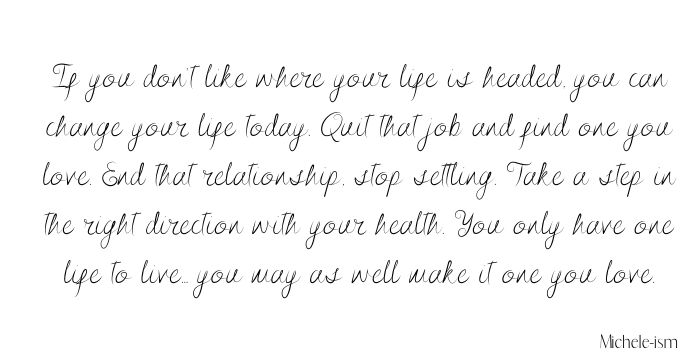 If you don't like where your life is headed, you can
change your life today. Quit that job and find one you
love. End that relationship, stop settling. Take a step in
the right direction with your health. You only have one
life to live... you may as well make it one you love.
Michele-ism